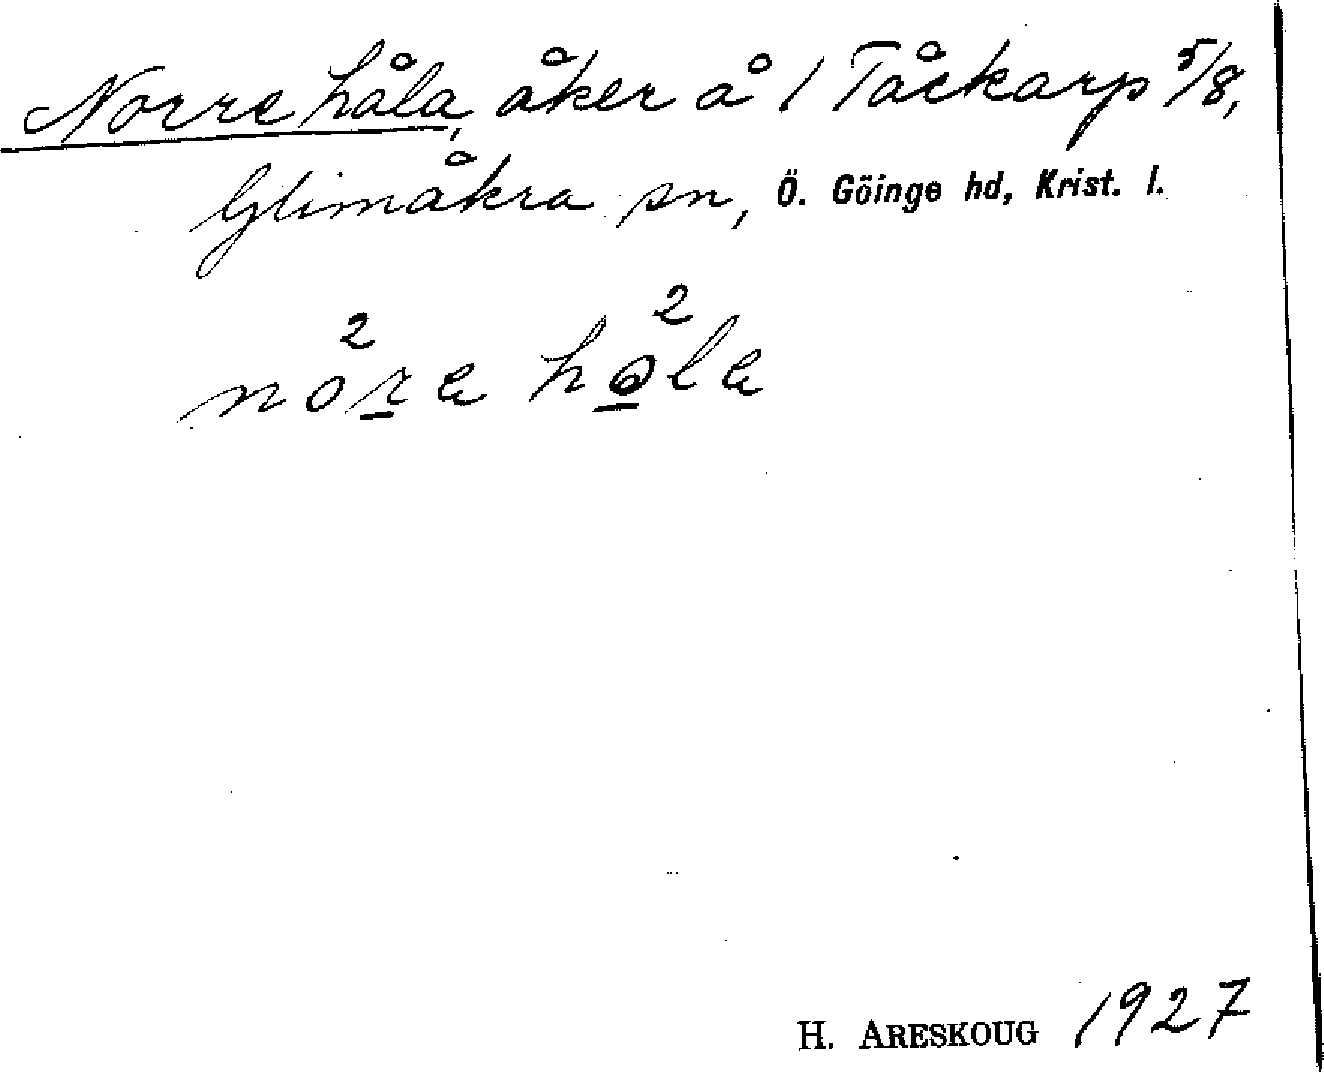 Norre håla, åker å 1 Tåckarp 5/8,
Glimåkra sn, Ö. Göinge hd, Krist. l.
H. ARESKOUG 1927